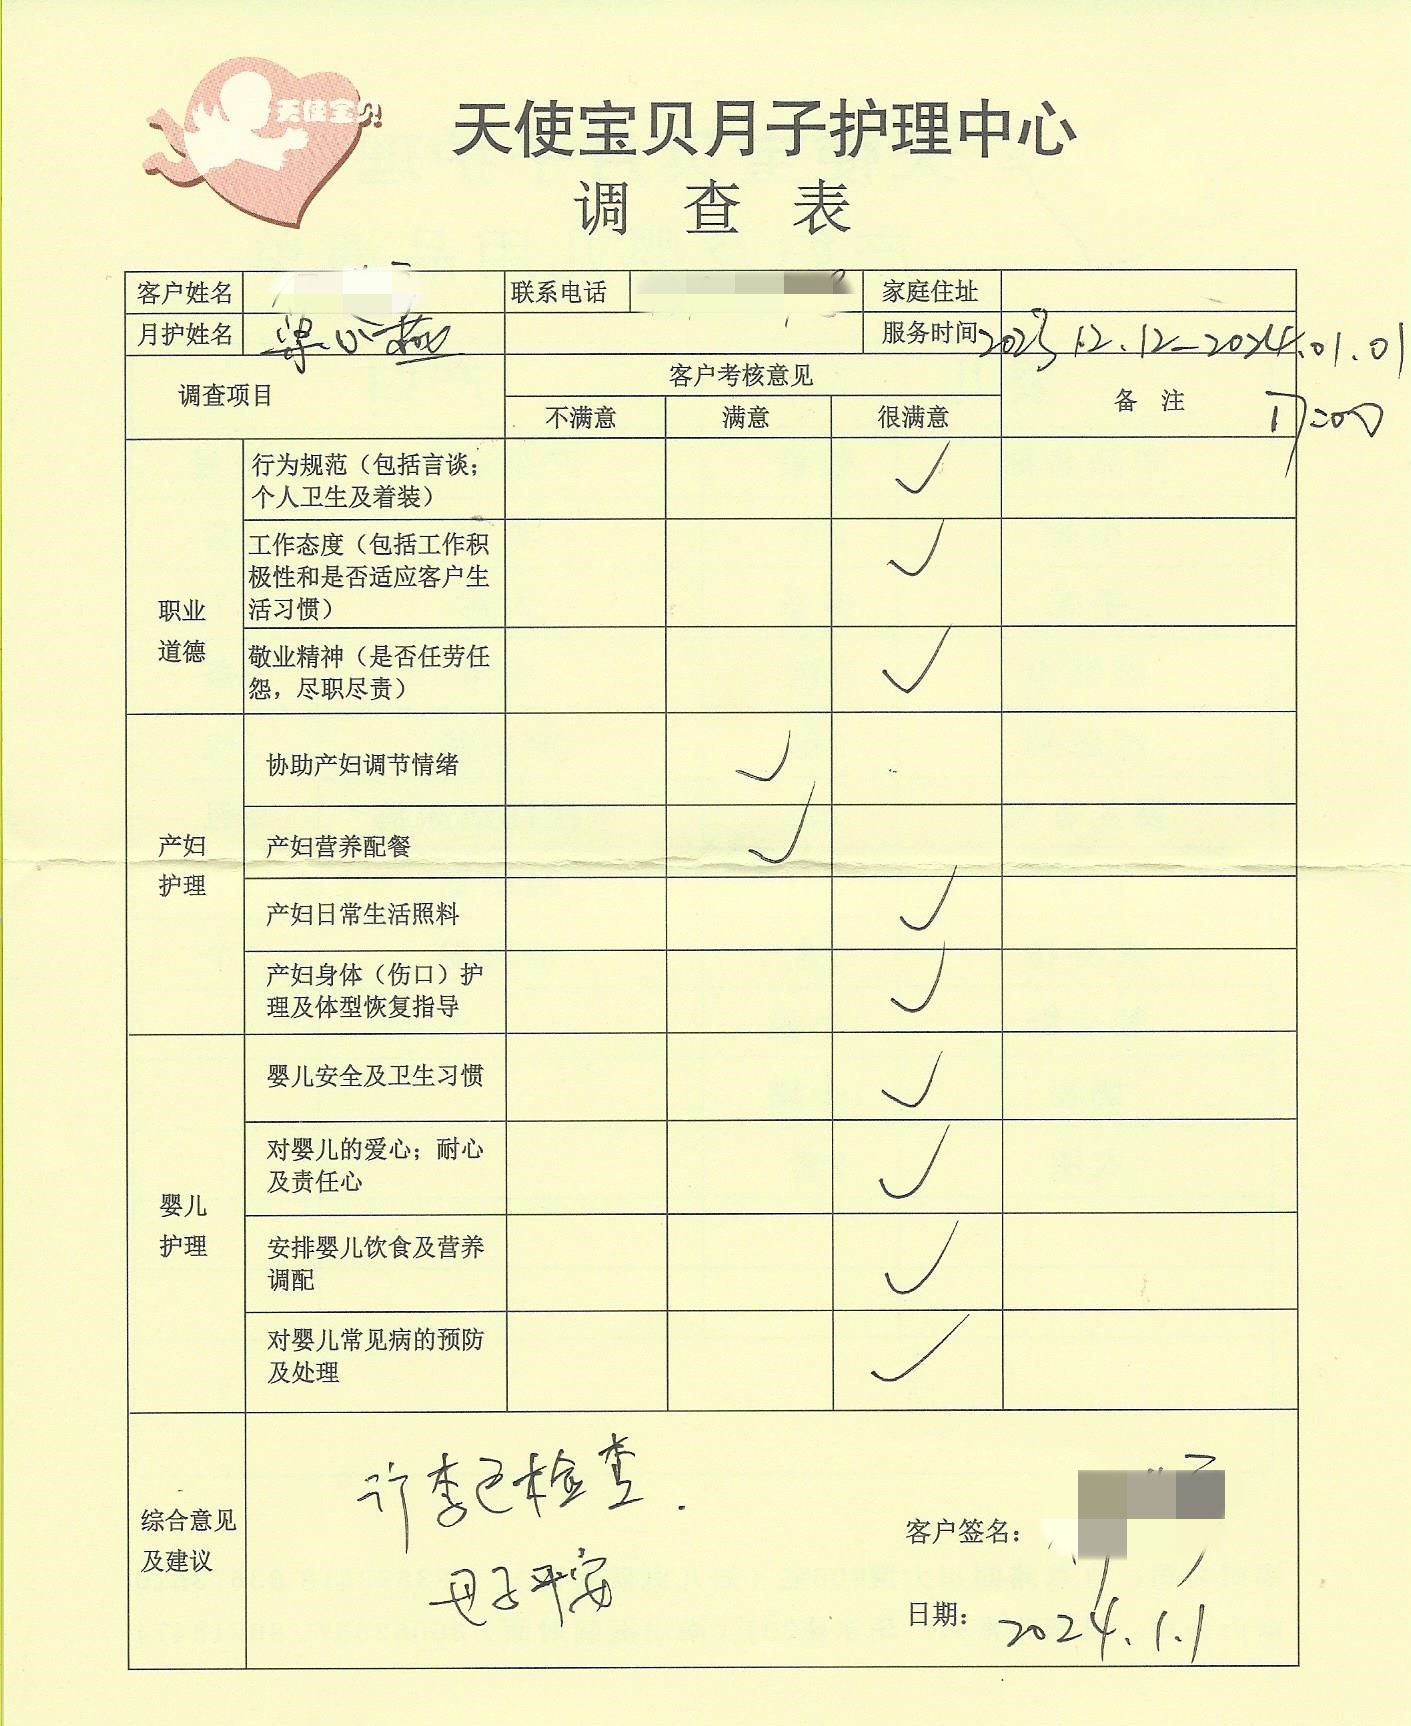 天使宝贝
天使宝贝月子护理中心
调查表
客户姓名 联系电话 家庭住址
月护姓名 梁小燕 服务时间 2023.12.12-2024.01.01
调查项目 客户考核意见 备注
不满意 满意 很满意
职业
道德
行为规范（包括言谈；
个人卫生及着装） ✓
工作态度（包括工作积
极性和是否适应客户生
活习惯） ✓
敬业精神（是否任劳任
怨，尽职尽责） ✓
产妇
护理
协助产妇调节情绪 ✓
产妇营养配餐 ✓
产妇日常生活照料 ✓
产妇身体（伤口）护
理及体型恢复指导 ✓
婴儿
护理
婴儿安全及卫生习惯 ✓
对婴儿的爱心；耐心
及责任心 ✓
安排婴儿饮食及营养
调配 ✓
对婴儿常见病的预防
及处理 ✓
综合意见
及建议
行李已检查.
母子平安
客户签名：
日期： 2024.1.1